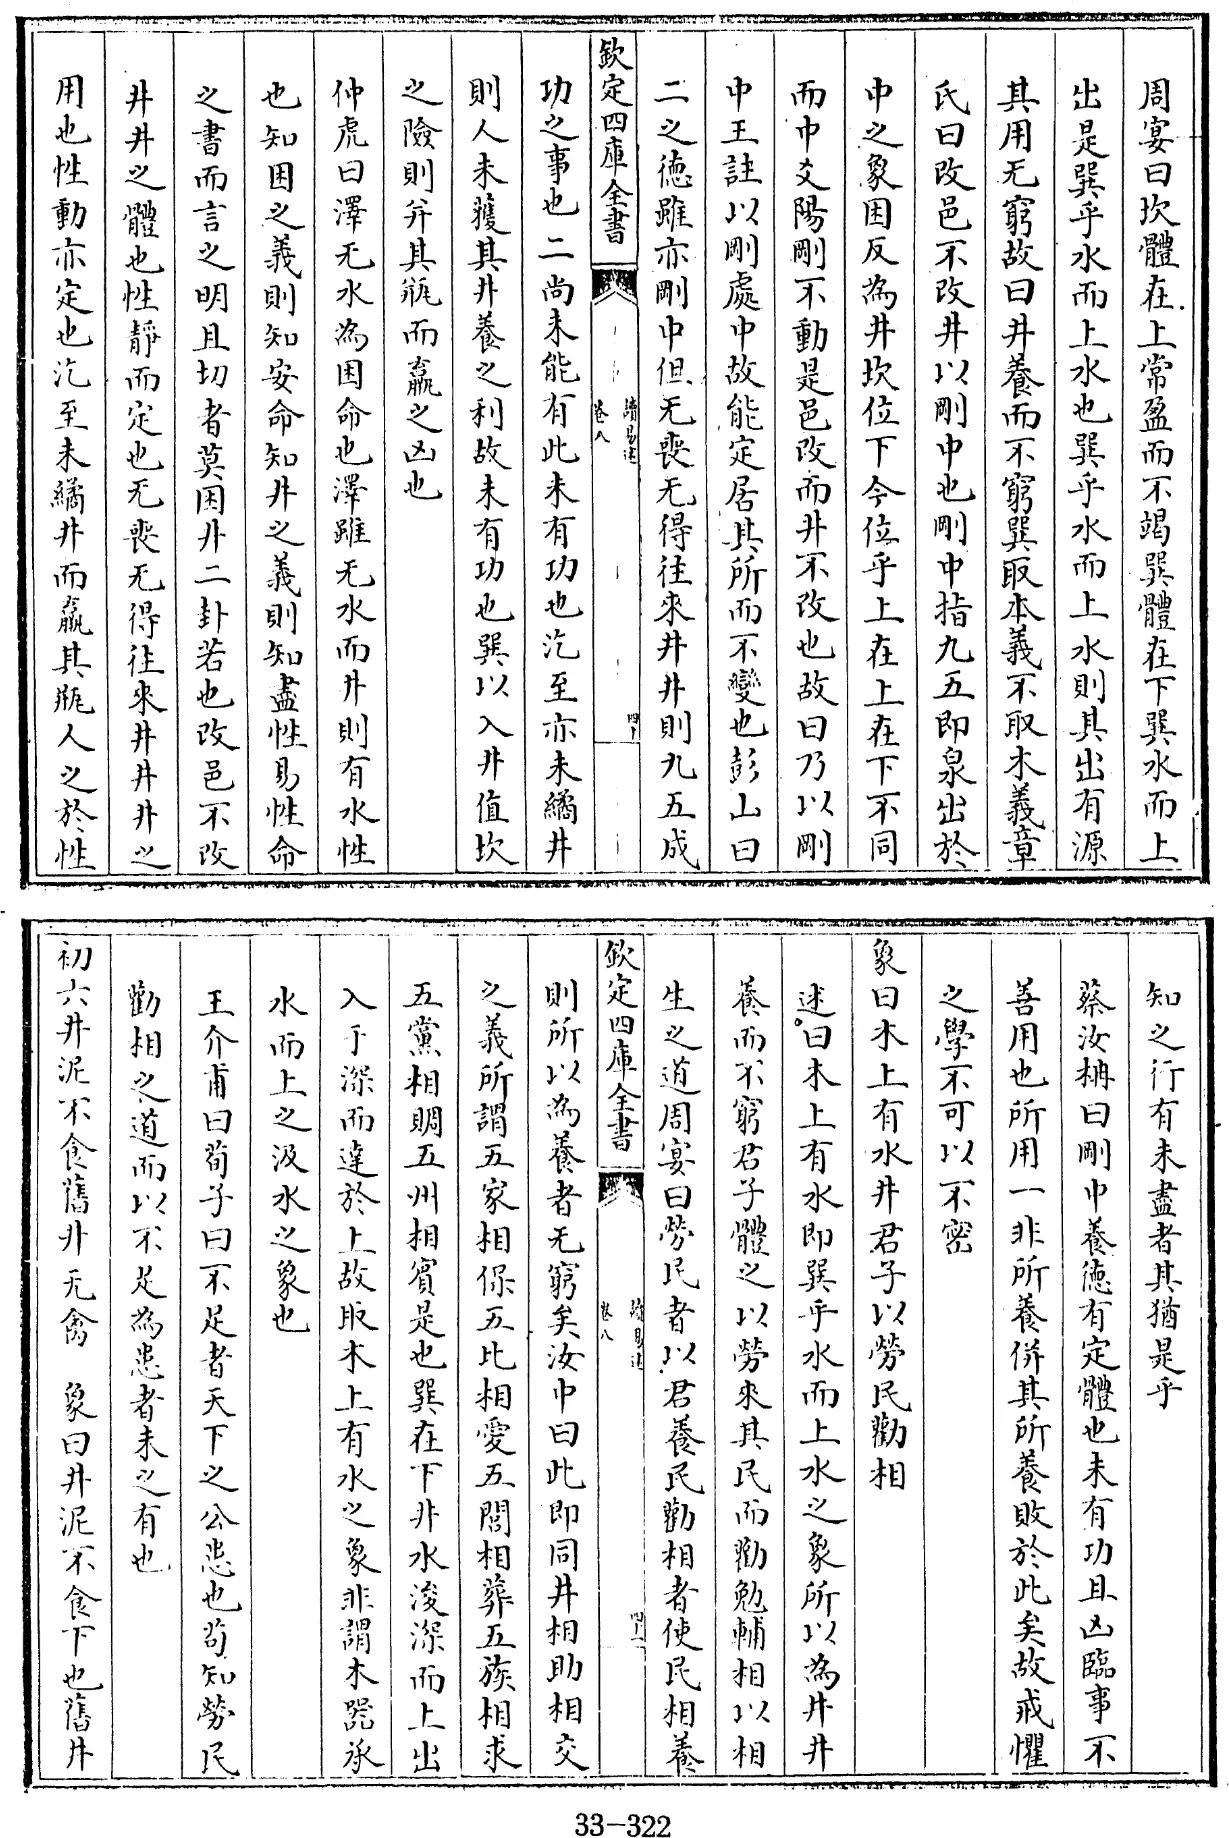 周宴曰坎體在上常盈而不竭巽體在下巽水而上
出是巽乎水而上水也巽乎水而上水則其出有源
其用无窮故曰井養而不窮巽取本義不取木義章
氏曰改邑不改井以剛中也剛中指九五即泉出於
中之象困反為井坎位下今位乎上在上在下不同
而中爻陽剛不動是邑改而井不改也故曰乃以剛
中王註以剛處中故能定居其所而不變也彭山曰
二之德雖亦剛中但无喪无得往來井井則九五成
欽定四庫全書
讀易述
卷八
功之事也二尚未能有此未有功也汔至亦未繘井
則人未獲其井養之利故未有功也巽以入井值坎
之險則并其瓶而羸之凶也
仲虎曰澤无水為困命也澤雖无水而井則有水性
也知困之義則知安命知井之義則知盡性易性命
之書而言之明且切者莫困井二卦若也改邑不改
井井之體也性靜而定也无喪无得往來井井井之
用也性動亦定也汔至未繘井而羸其瓶人之於性
知之行有未盡者其猶是乎
蔡汝柟曰剛中養德有定體也未有功且凶臨事不
善用也所用一非所養併其所養敗於此矣故戒懼
之學不可以不密
象曰木上有水井君子以勞民勸相
述曰木上有水即巽乎水而上水之象所以為井井
養而不窮君子體之以勞來其民而勸勉輔相以相
生之道周宴曰勞民者以君養民勸相者使民相養
欽定四庫全書
讀易述
卷八
則所以為養者无窮矣汝中曰此即同井相助相交
之義所謂五家相保五比相愛五閭相葬五族相求
五黨相賙五州相賓是也巽在下井水浚深而上出
入于深而達於上故取木上有水之象非謂木器承
水而上之汲水之象也
王介甫曰荀子曰不足者天下之公患也苟知勞民
勸相之道而以不足為患者未之有也
初六井泥不食舊井无禽 象曰井泥不食下也舊井
33-322